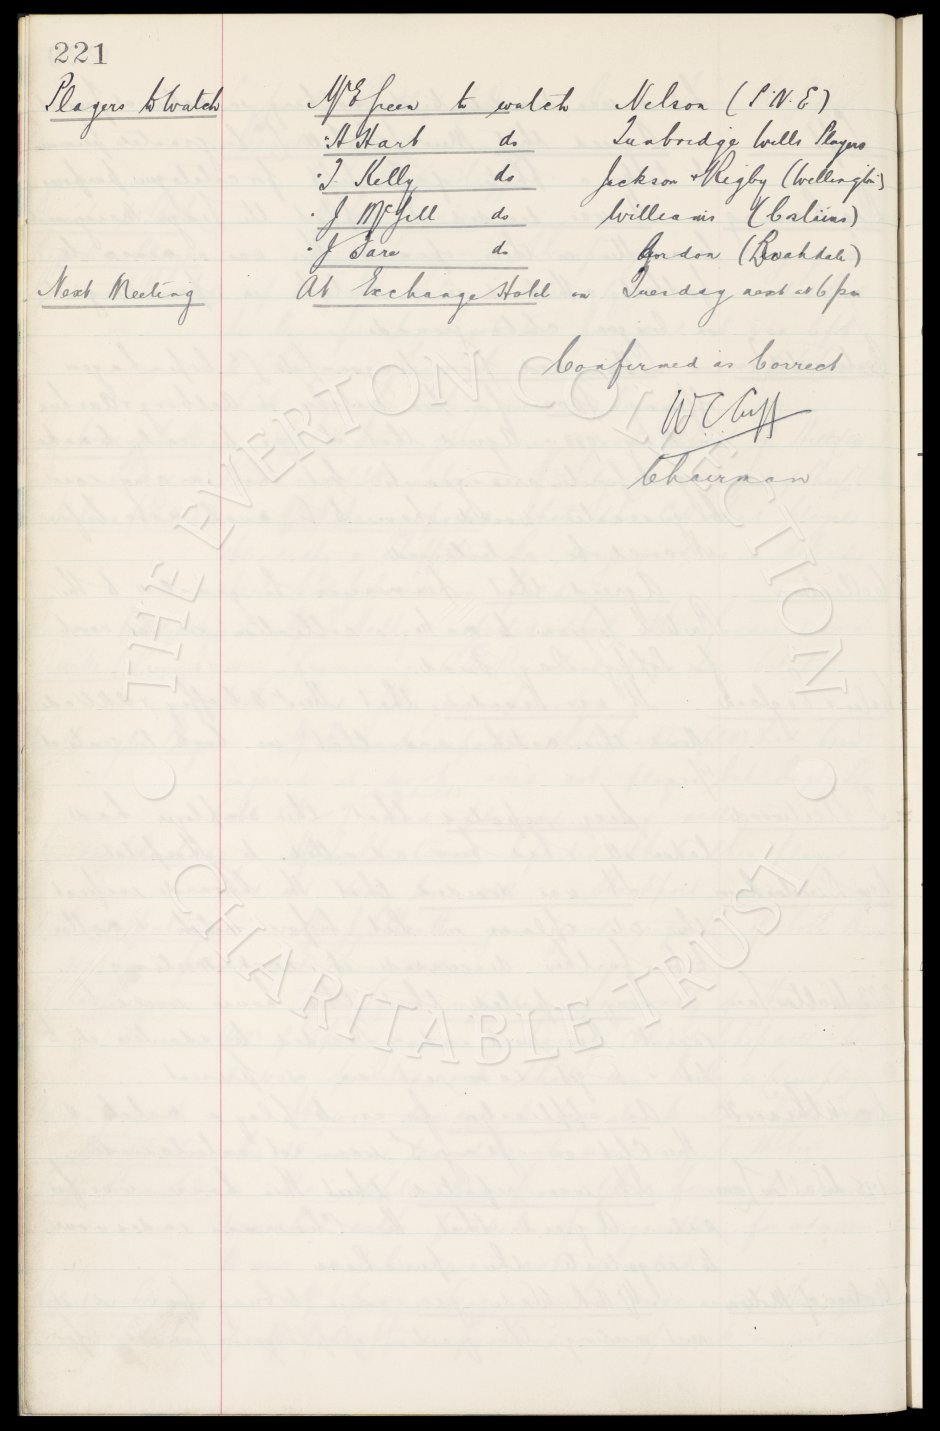 221
Players to Watch Mr E Green to watch Nelson (P.N.E)
" A Hart do Tunbridge Wells Players
" T Kelly do Jackson + Rigby (Wellington)
" J McGill do Williams (Colwins)
" J Fare do Gordon (Rochdale)
Next Meeting At Exchange Hotel on Tuesday next at 6 pm
Confirmed as Correct
W C Cuff
Chairman
THE EVERTON COLLECTION
CHARITABLE TRUST